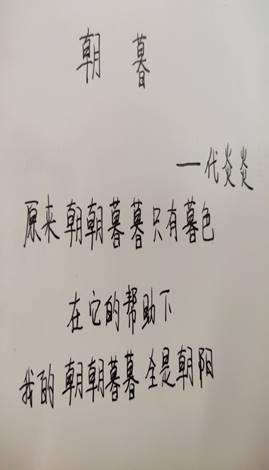 朝暮
一代炎炎
原来朝朝暮暮只有暮色
在它的帮助下
我的朝朝暮暮全是朝阳